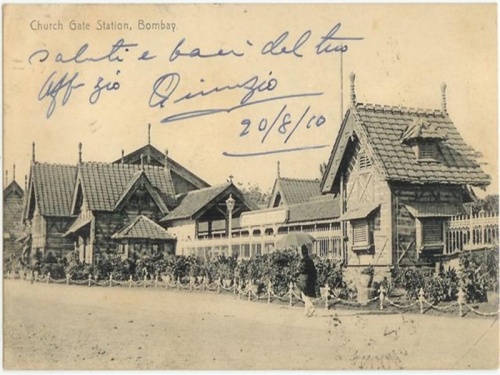 Church Gate Station, Bombay.
saluti e baci del tuo
Aff. zio
20/8/10